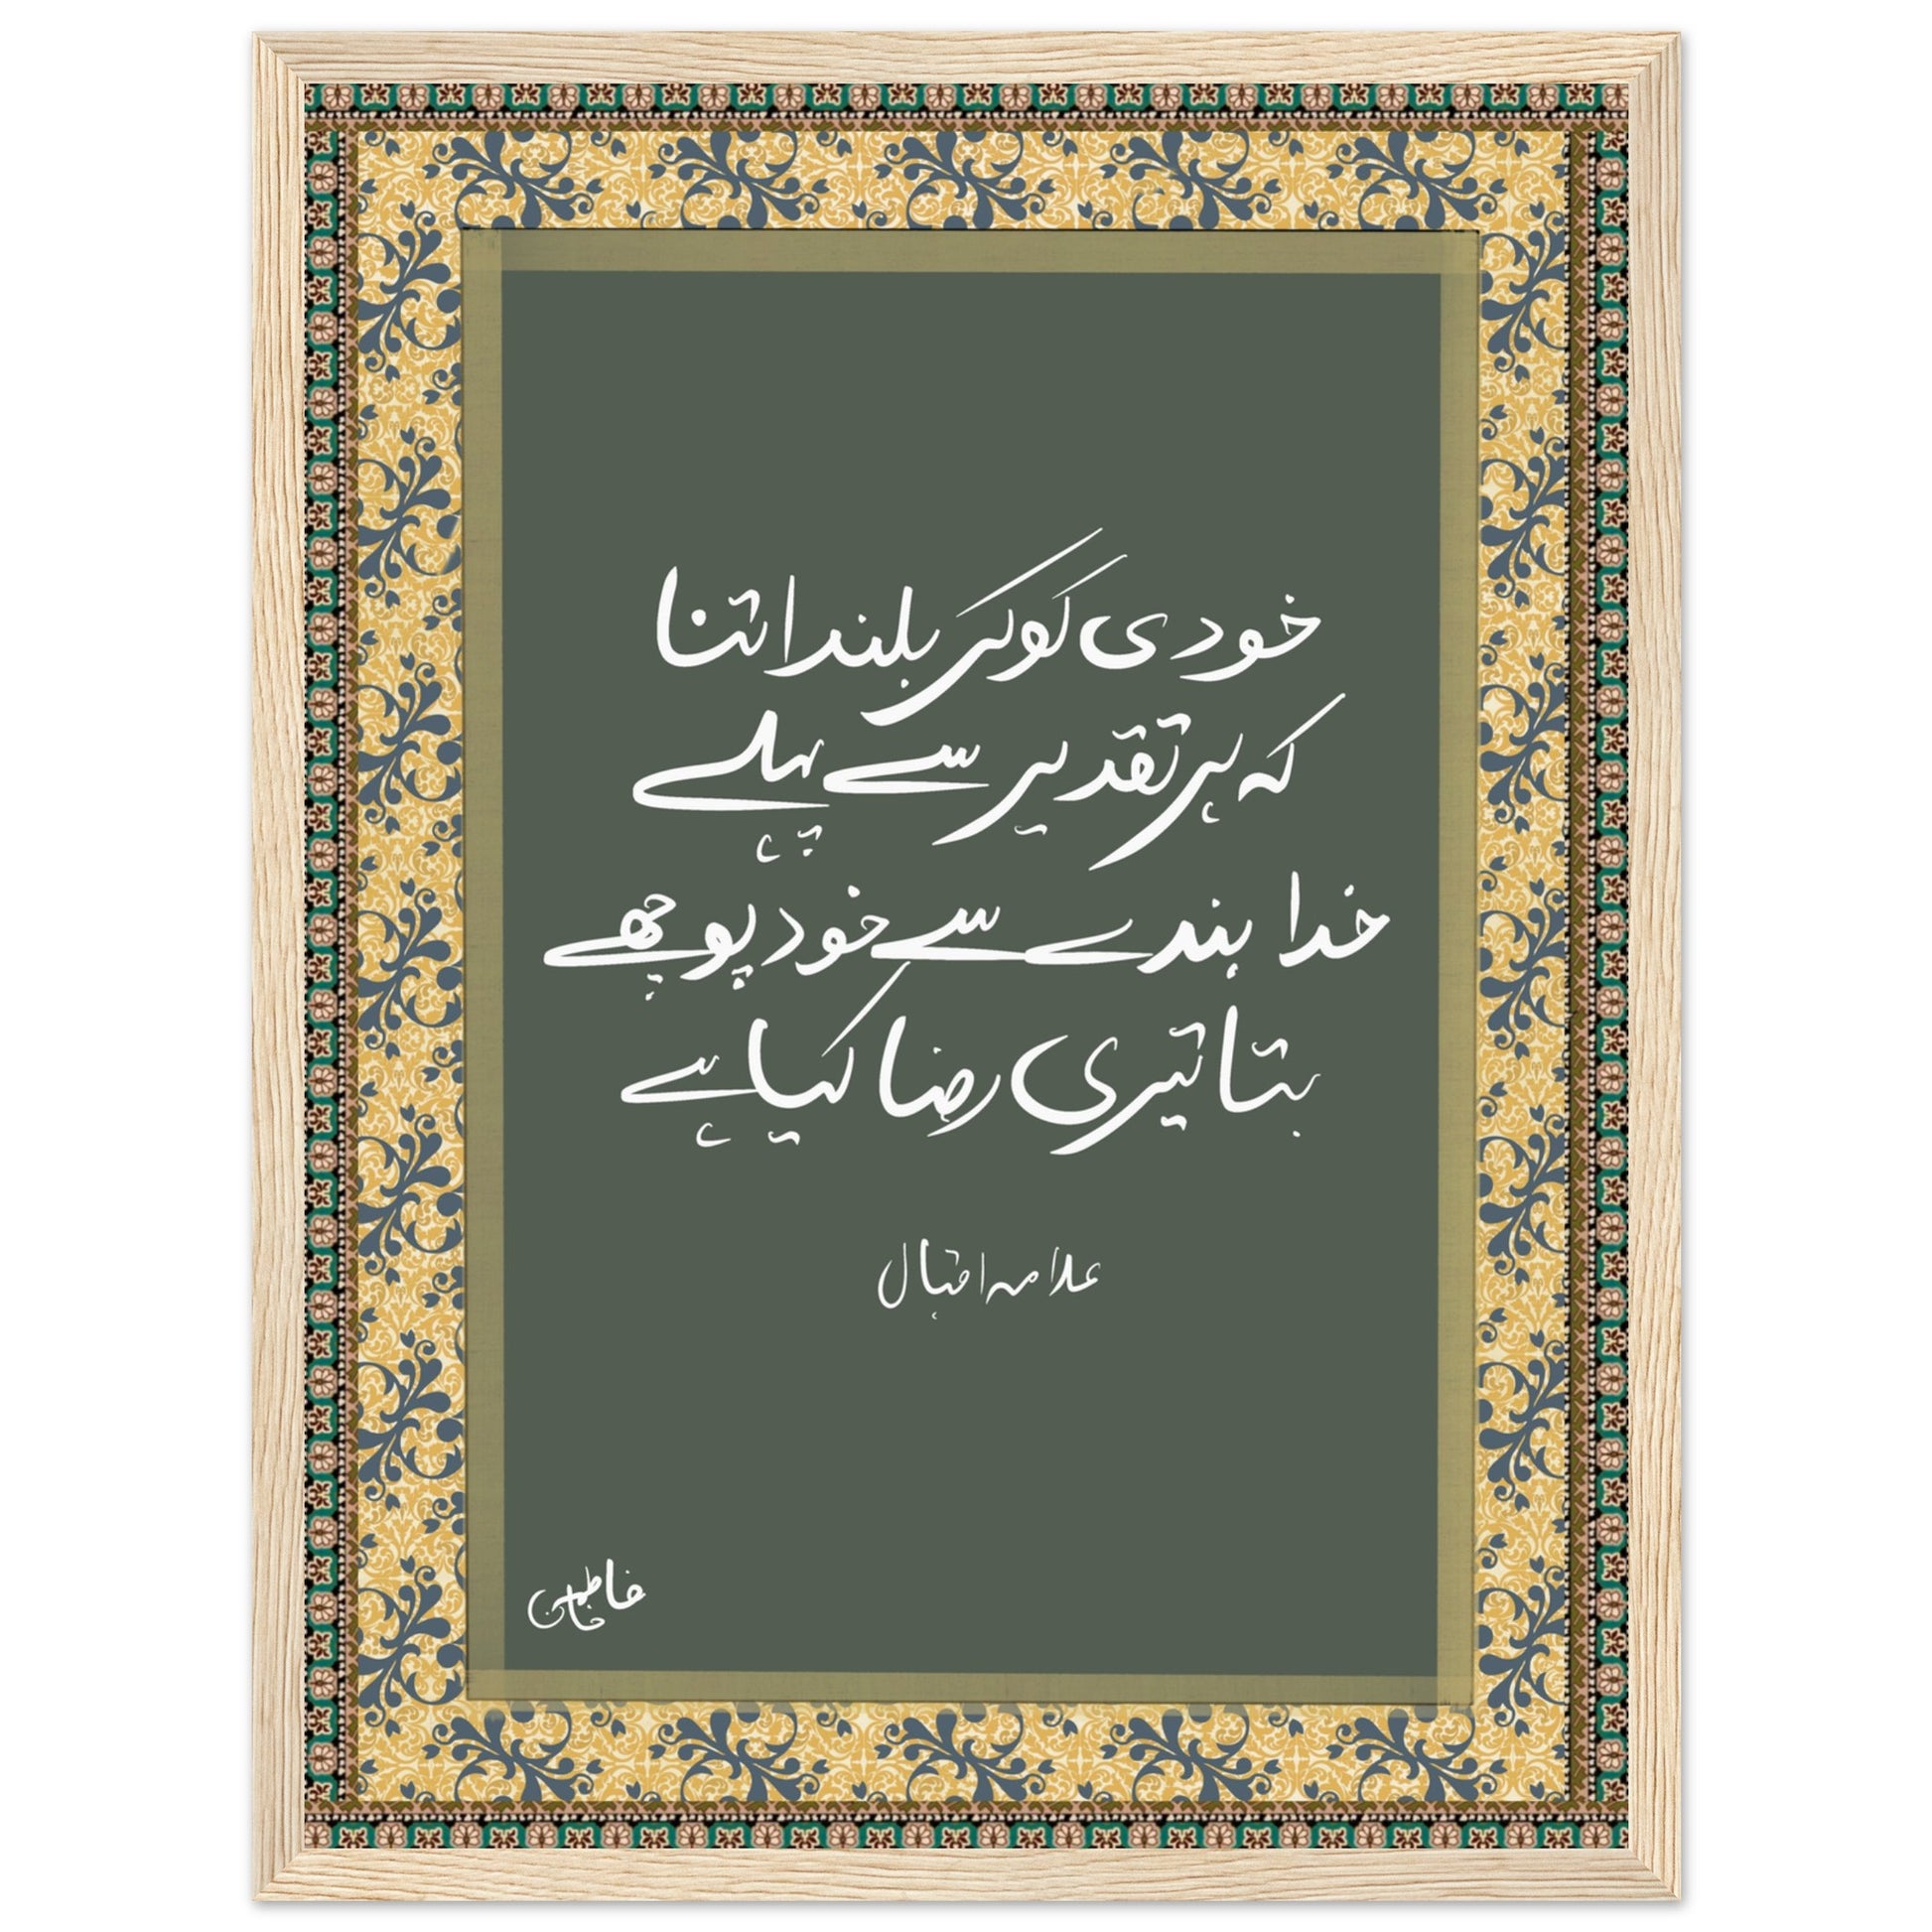 خودی کو کر بلند اتنا
کہ ہر تقدیر سے پہلے
خدا بندے سے خود پوچھے
بتا تیری رضا کیا ہے
علامہ اقبال
فاطمہ